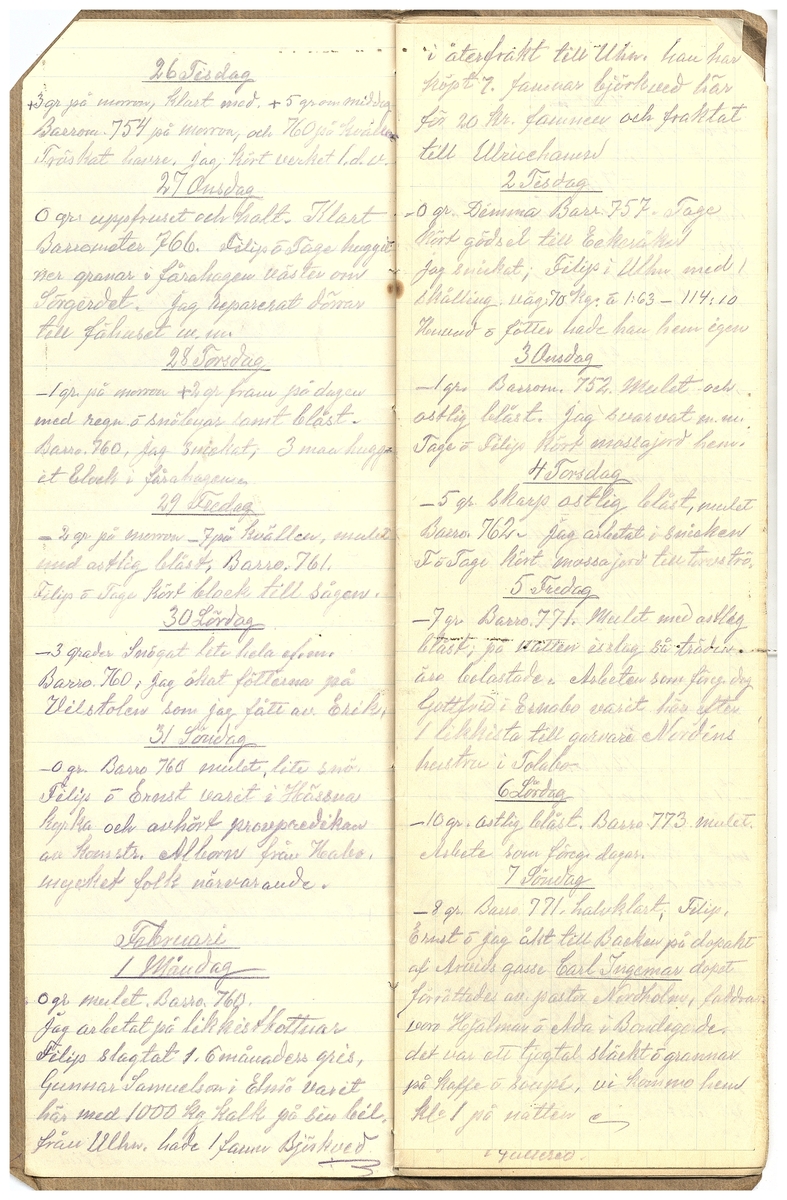 26 Tisdag
+3 gr på morron, klart med. + 5 gr om middag
Barrom. 754 på morron, och 760 på kvällen
Tröskat havre. jag kört verket 1. d. v.
27 Onsdag
0 gr. uppfruset och halt. Klart
Barrometer 766. Filip o Tage huggit
ner granar i fårahagen väster om
Sörgerdet. Jag reparerat dörrar
till fähuset m.m.
28 Torsdag
-1 gr. på morron +2 gr fram på dagen
med regn o snöbyar samt blåst.
Barro. 760, jag snickat, 3 man hugg-
it block i fårahagen.
29 Fredag
-2 gr. på morron -7 på kvällen, mulet
med ostlig blåst, Barro. 761.
Filip o Tage kört block till sågen.
30 Lördag
-3 grader Snögat lite hela
Barro. 760, jag ökat fötterna på
Vilstolen som jag fått av Erik.
31 Söndag
-0 gr. Barro 760 mulet, lite snö.
Filip o Ernst varit i Hässna
kyrka och avhört provpredikan
av komstr. Alborn från Habo.
mycket folk närvarande.
Februari
1 Måndag
0 gr mulet. Barro. 760.
Jag arbetat på likkistbottnar
Filip slagtat 1. 6 månaders gris,
Gunnar Samuelson i Elmö varit
här med 1000 kg kalk på sin bil.
från Ulhn. hade 1 famn Björkved
i återfrakt till Ulhn. han har
köpt 7. famnar björkved här
för 20 kr. famnen och fraktat
till Ulricehamn
2 Tisdag
-0 gr. Dimma Barr. 757. Tage
kört gödsel till Eekeråker
jag snickat; Filip i Ulhn med 1
skålling. väg 70 kg. à 1:63 - 114:10
Huvud o fötter hade han hem igen
3 Onsdag
-1 gr. Barrom. 752. Mulet och
ostlig blåst. jag svarvat m.m.
Tage o Filip kört mossajord hem.
4 Torsdag
-5 gr skarp ostlig blåst, mulet
Barro. 762. Jag arbetat i snicken
F o Tage kört mossajord till torvströ.
5 Fredag
-7 gr Barro. 771. Mulet med ostlig
blåst; på natten isslag så träden
äro belastade. Arbeten som föreg. dag
Gottfrid i Ernabo varit här efter
1 likkista till garvare Nordins
hustru i Tolabo
6 Lördag
-10 gr. ostlig blåst. Barro 773 mulet.
Arbete som föreg. dagar.
7 Söndag
-8 gr. Barro. 771. halvklart, Filip,
Ernst o jag åkt till Backen på dopakt
af Arvids gosse Carl Ingemar dopet
förrättades av pastor Nordholm, faddrar
voro Hjalmar o Ada i Bondegärde.
det var ett tjogtal släckt o grannar
på kaffe o soupé, vi kommo hem
kl. 1 på natten